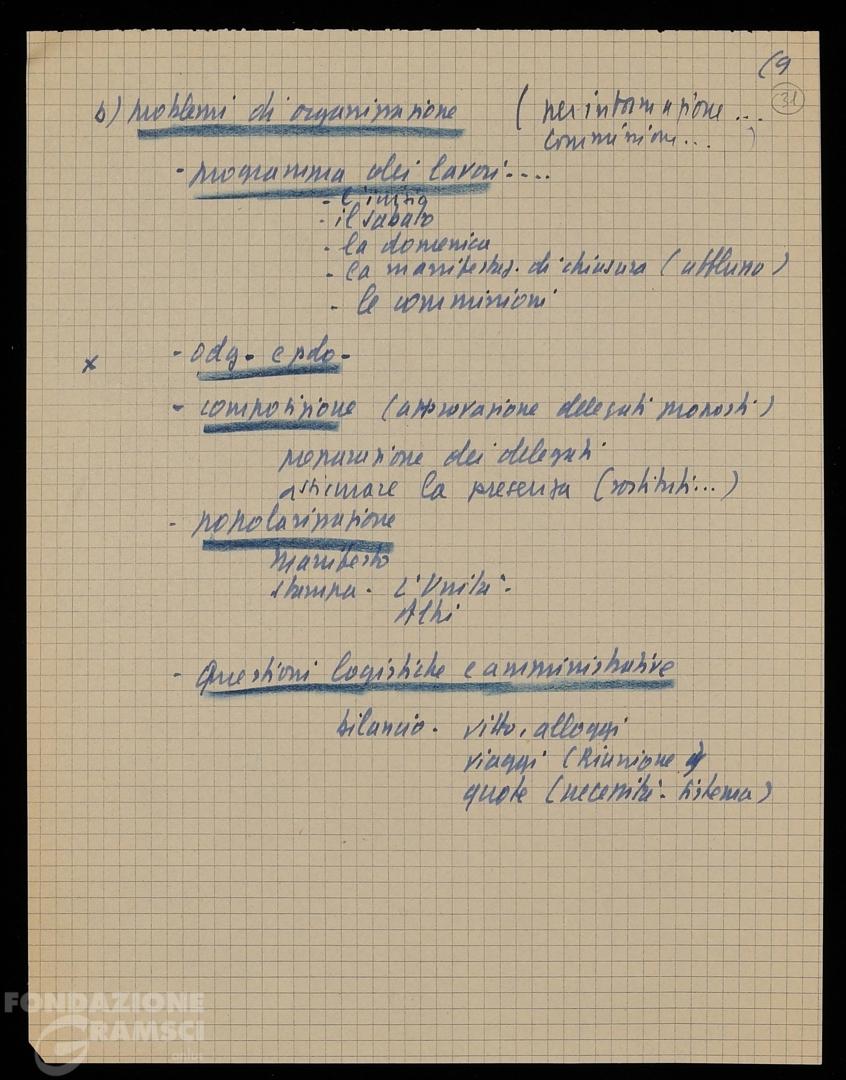 (9
31
b) problemi di organizzazione (per informazione...
commissioni... )
- programma dei lavori....
- l'inizio
- il sabato
- la domenica
- la manifestaz. di chiusura (afflusso)
- le commissioni
x - odg - e pdo -
- composizione (approvazione delegati proposti)
preparazione dei delegati
assicurare la presenza (sostituti...)
- popolarizzazione
manifesto
stampa - L'Unità -
Altri
- Questioni logistiche e amministrative
bilancio - vitto, alloggi
viaggi (Riunione
quote (necessità - sistema)
FONDAZIONE
GRAMSCI
onlus